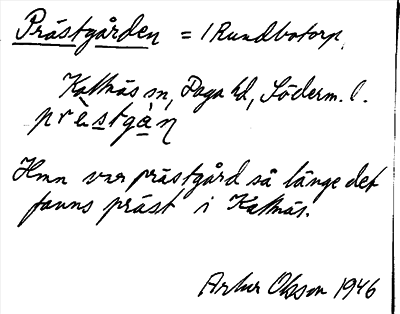 Prästgården = 1 Rundbotorp,
Kattnäs sn, Daga hd, Söderm. l.
prèstgàṇ
Hmn var prästgård så länge det
fanns präst i Kattnäs.
Artur Olsson 1946